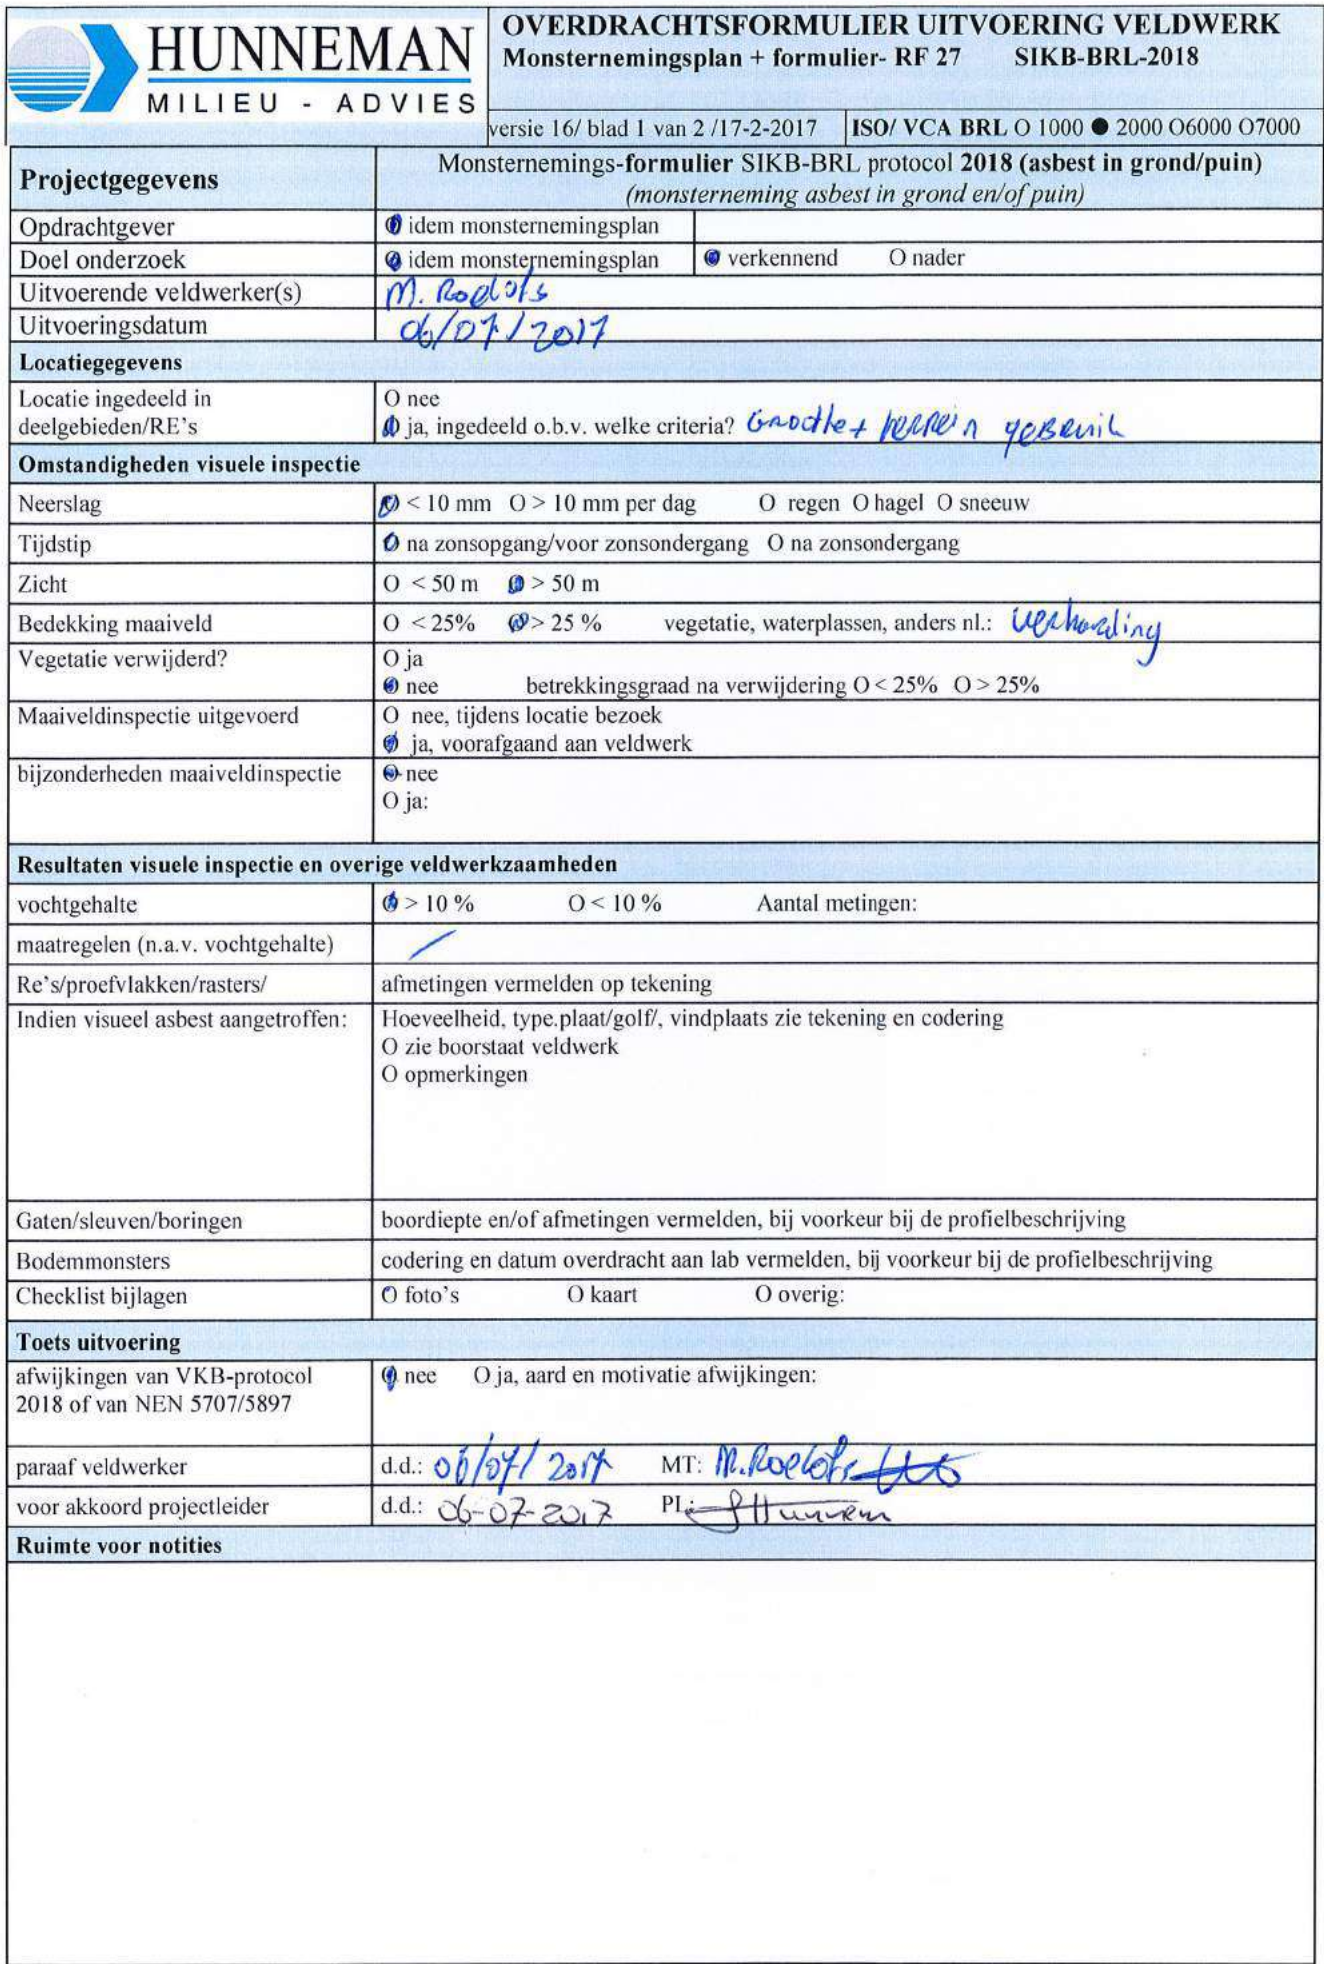 HUNNEMAN
MILIEU - ADVIES
OVERDRACHTSFORMULIER UITVOERING VELDWERK
Monsternemingsplan + formulier- RF 27 SIKB-BRL-2018
versie 16/ blad 1 van 2 /17-2-2017 ISO/ VCA BRL O 1000 ● 2000 O6000 O7000
Projectgegevens
Monsternemings-formulier SIKB-BRL protocol 2018 (asbest in grond/puin)
(monsterneming asbest in grond en/of puin)
Opdrachtgever O idem monsternemingsplan
Doel onderzoek O idem monsternemingsplan O verkennend O nader
Uitvoerende veldwerker(s) M. Roelofs
Uitvoeringsdatum 06/07/2017
Locatiegegevens
Locatie ingedeeld in O nee
deelgebieden/RE's O ja, ingedeeld o.b.v. welke criteria? Grootte + terrein gebruik
Omstandigheden visuele inspectie
Neerslag O < 10 mm O > 10 mm per dag O regen O hagel O sneeuw
Tijdstip O na zonsopgang/voor zonsondergang O na zonsondergang
Zicht O < 50 m O > 50 m
Bedekking maaiveld O < 25% O > 25 % vegetatie, waterplassen, anders nl.: verharding
Vegetatie verwijderd? O ja
O nee betrekkingsgraad na verwijdering O < 25% O > 25%
Maaiveldinspectie uitgevoerd O nee, tijdens locatie bezoek
O ja, voorafgaand aan veldwerk
bijzonderheden maaiveldinspectie O nee
O ja:
Resultaten visuele inspectie en overige veldwerkzaamheden
vochtgehalte O > 10 % O < 10 % Aantal metingen:
maatregelen (n.a.v. vochtgehalte) /
Re's/proefvlakken/rasters/ afmetingen vermelden op tekening
Indien visueel asbest aangetroffen: Hoeveelheid, type.plaat/golf/, vindplaats zie tekening en codering
O zie boorstaat veldwerk
O opmerkingen
Gaten/sleuven/boringen boordiepte en/of afmetingen vermelden, bij voorkeur bij de profielbeschrijving
Bodemmonsters codering en datum overdracht aan lab vermelden, bij voorkeur bij de profielbeschrijving
Checklist bijlagen O foto's O kaart O overig:
Toets uitvoering
afwijkingen van VKB-protocol O nee O ja, aard en motivatie afwijkingen:
2018 of van NEN 5707/5897
paraaf veldwerker d.d.: 06/07/2017 MT: M. Roelofs
voor akkoord projectleider d.d.: 06-07-2017 PL:
Ruimte voor notities